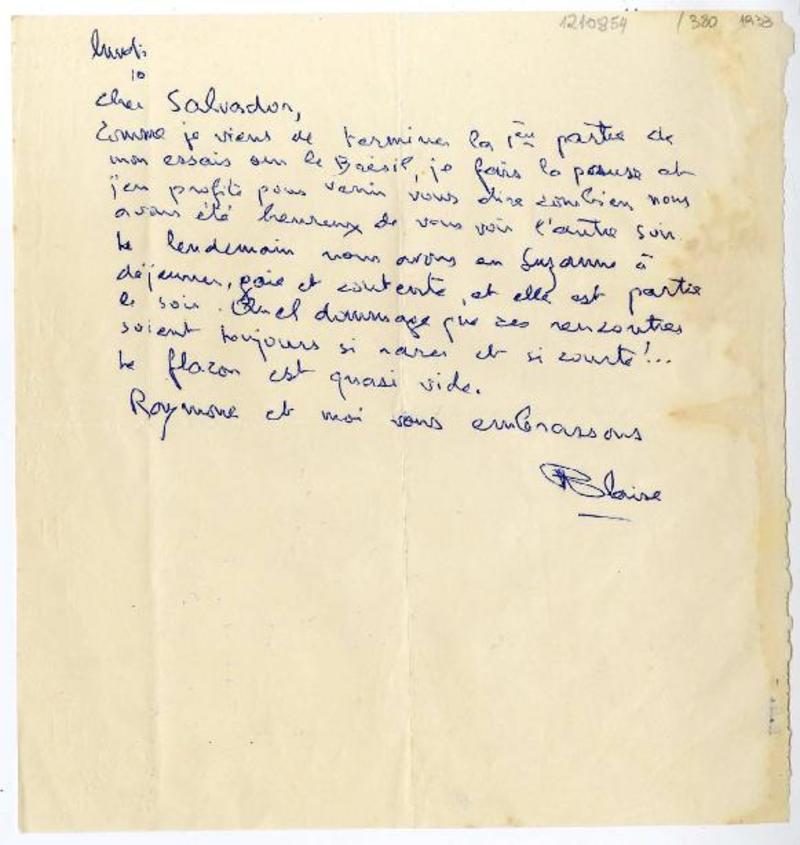 1210854 / 380 1938
lundi
10
Cher Salvador,
Comme je viens de terminer la 1ère partie de
mon essais sur le Brésil, je fais la pause et
j'en profite pour venir vous dire combien nous
avons été heureux de vous voir l'autre soir.
Le lendemain nous avons eu Suzanne à
déjeuner, gaie et contente, et elle est partie
le soir. Quel dommage que ces rencontres
soient toujours si rares et si courte!...
Le flacon est quasi vide.
Raymone et moi vous embrassons
Blaise